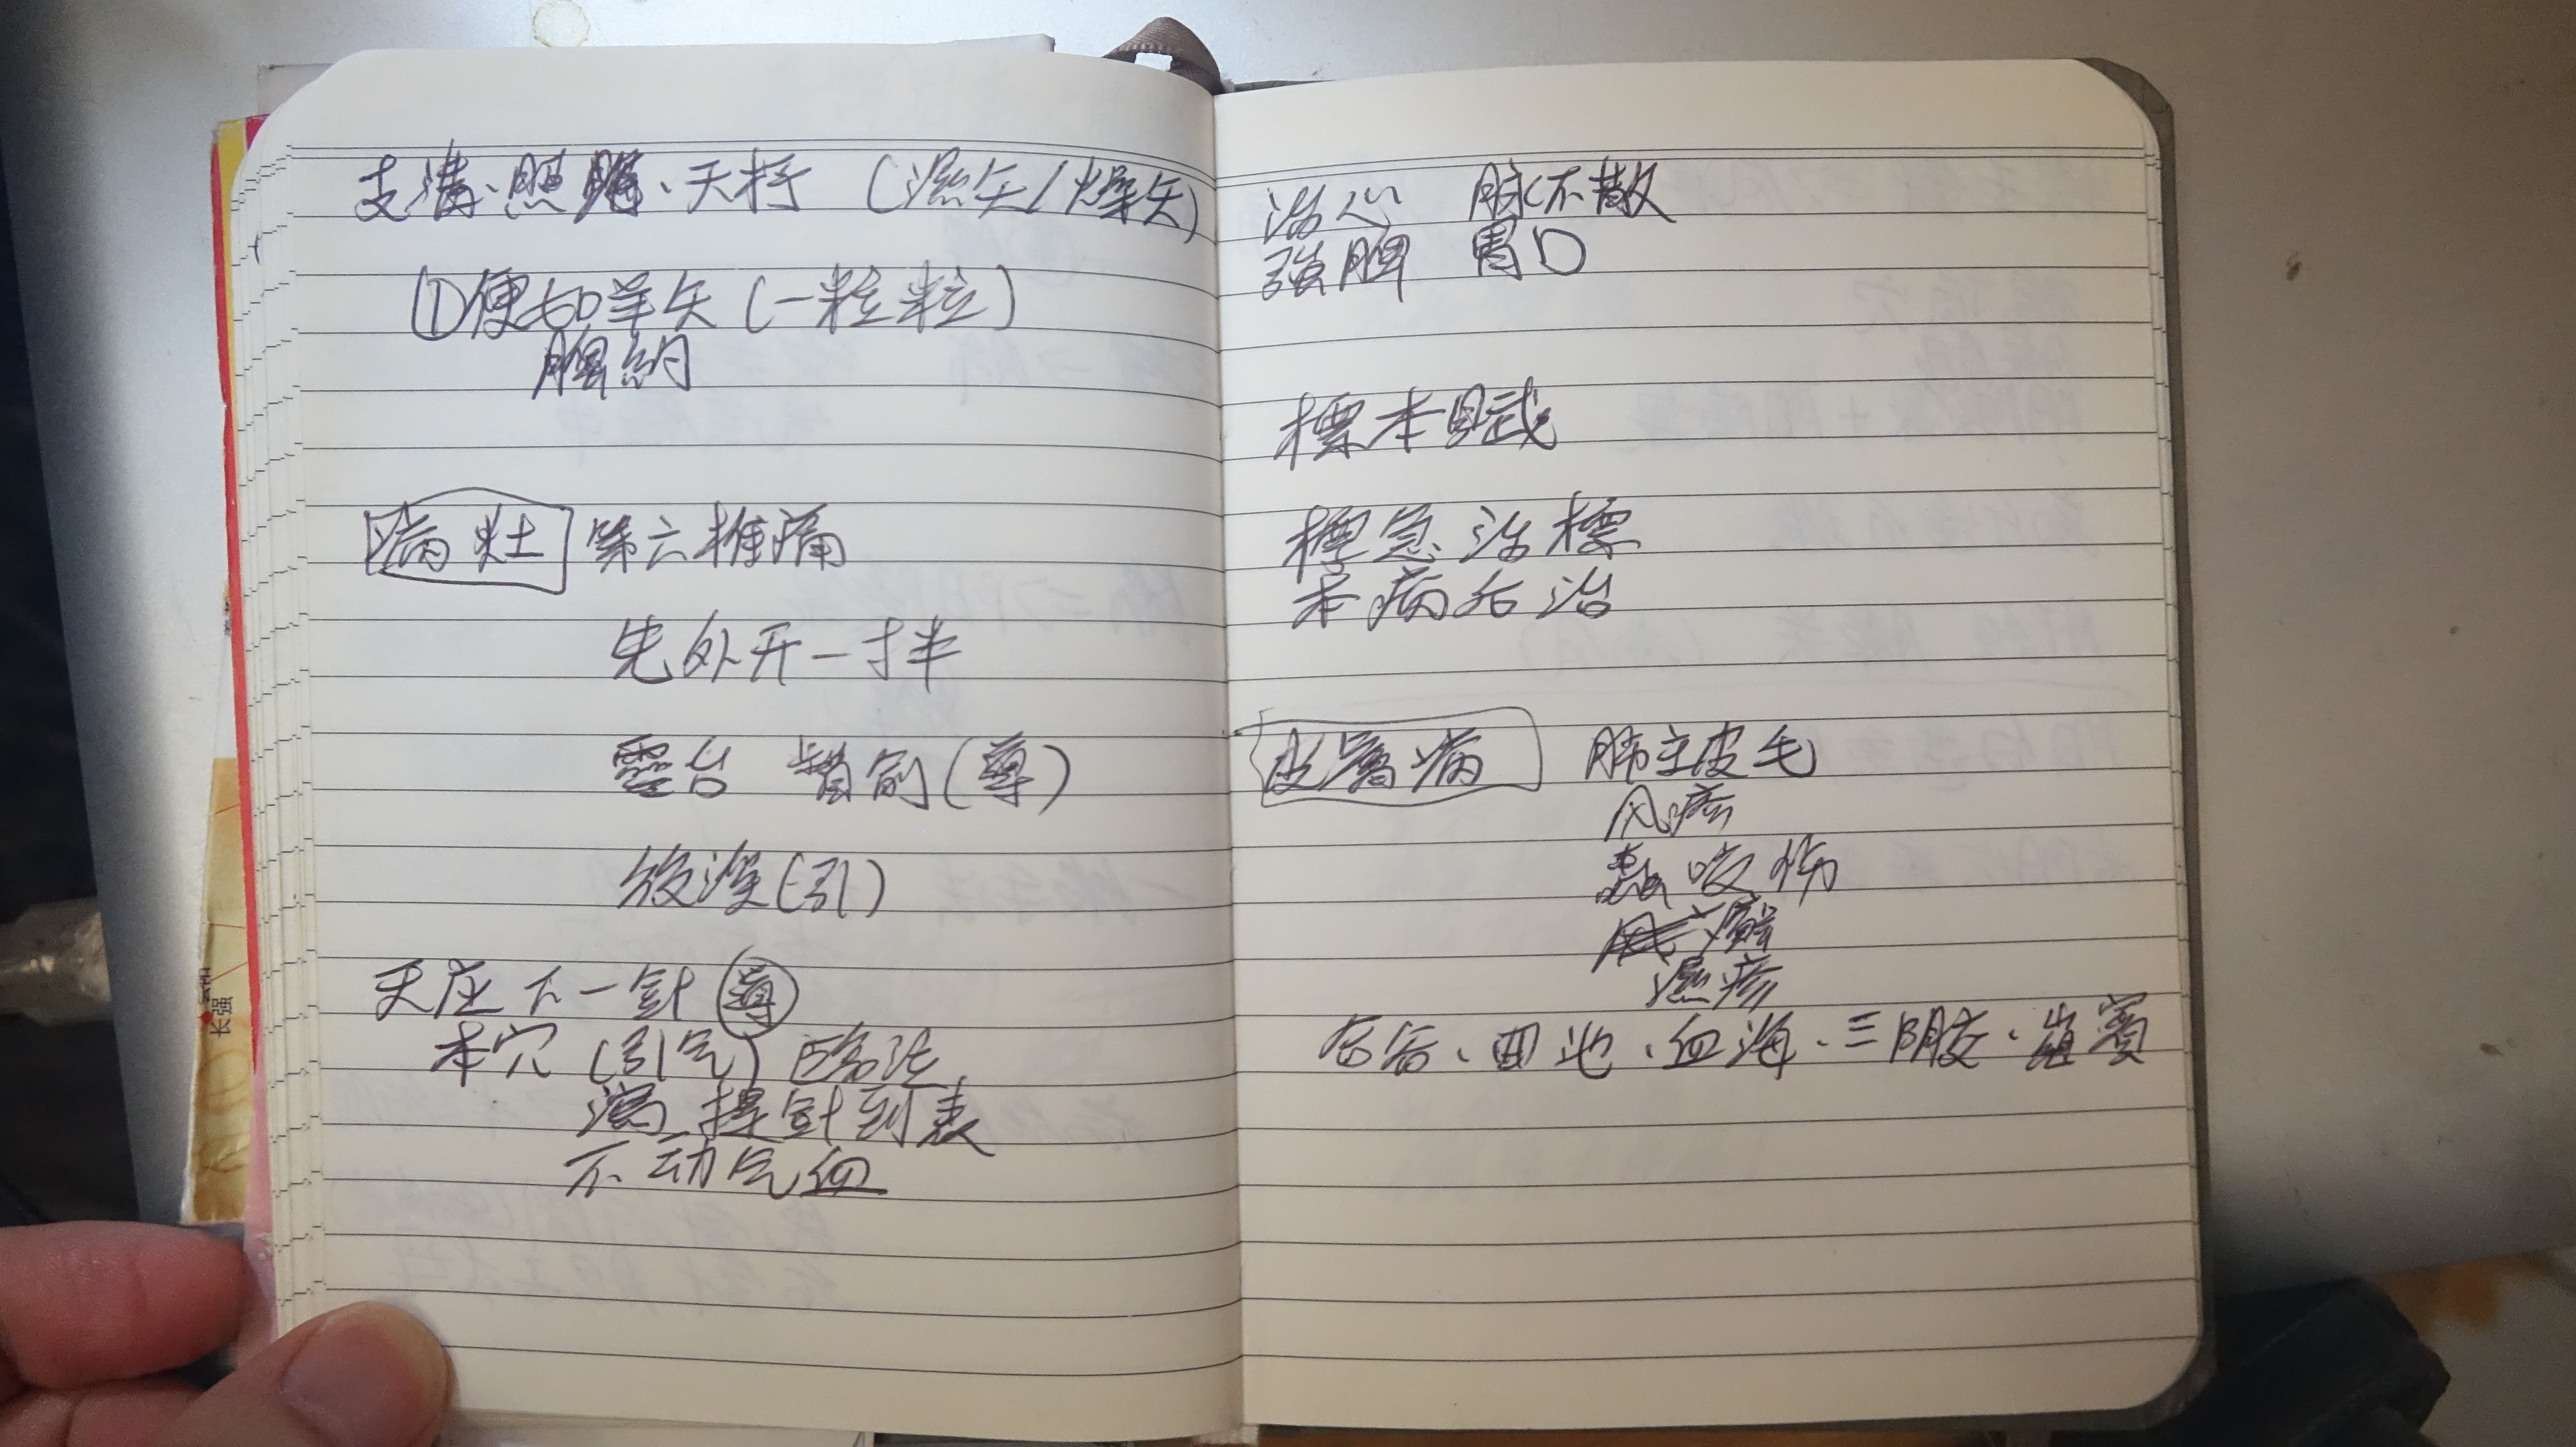 支溝、照購、天杼（濕矢/燥矢）
①便如羊矢（一粒粒）
腸約
病灶 第六椎痛
先外开一寸半
靈台 督俞(導)
放深(引)
天应下一針 導
本穴（引气）
瀉 提針到表
不动气血
长强
治心 脉不散
強脾 胃口
標本賦
標急治標
本病后治
皮膚病 肺主皮毛
风疹
蟲咬伤
癬
濕疹
合谷、曲池、血海、三阴交、築賓